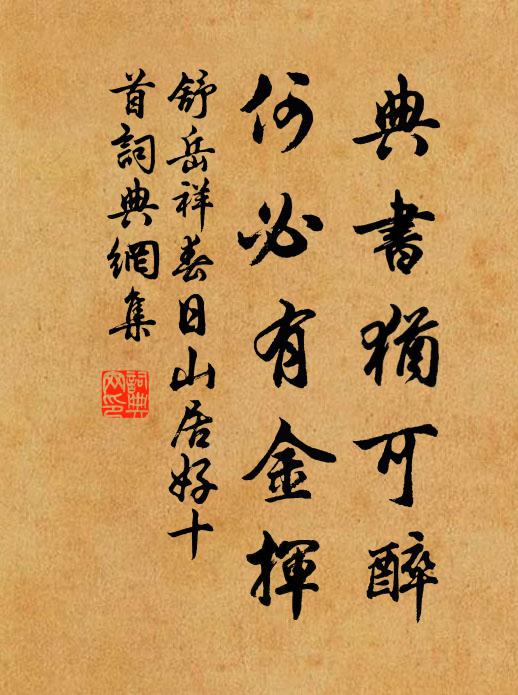 典書猶可醉
何必有金揮
舒岳祥春日山居好十
首詞典網集
詞典網印